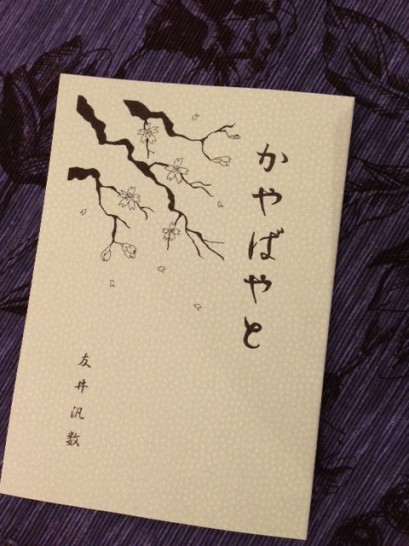 かやばやと
友井汎数